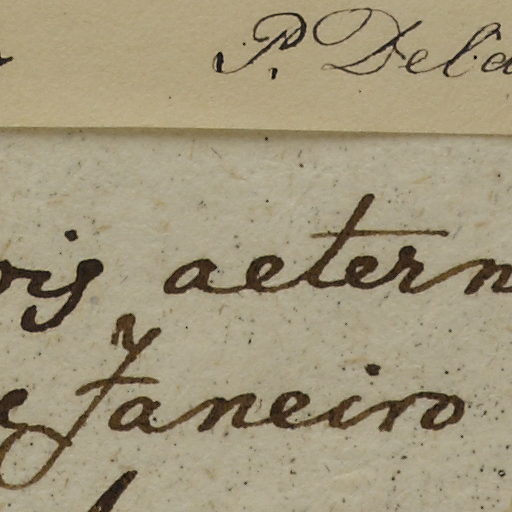 P. Dela
vis aetern
e Janeiro